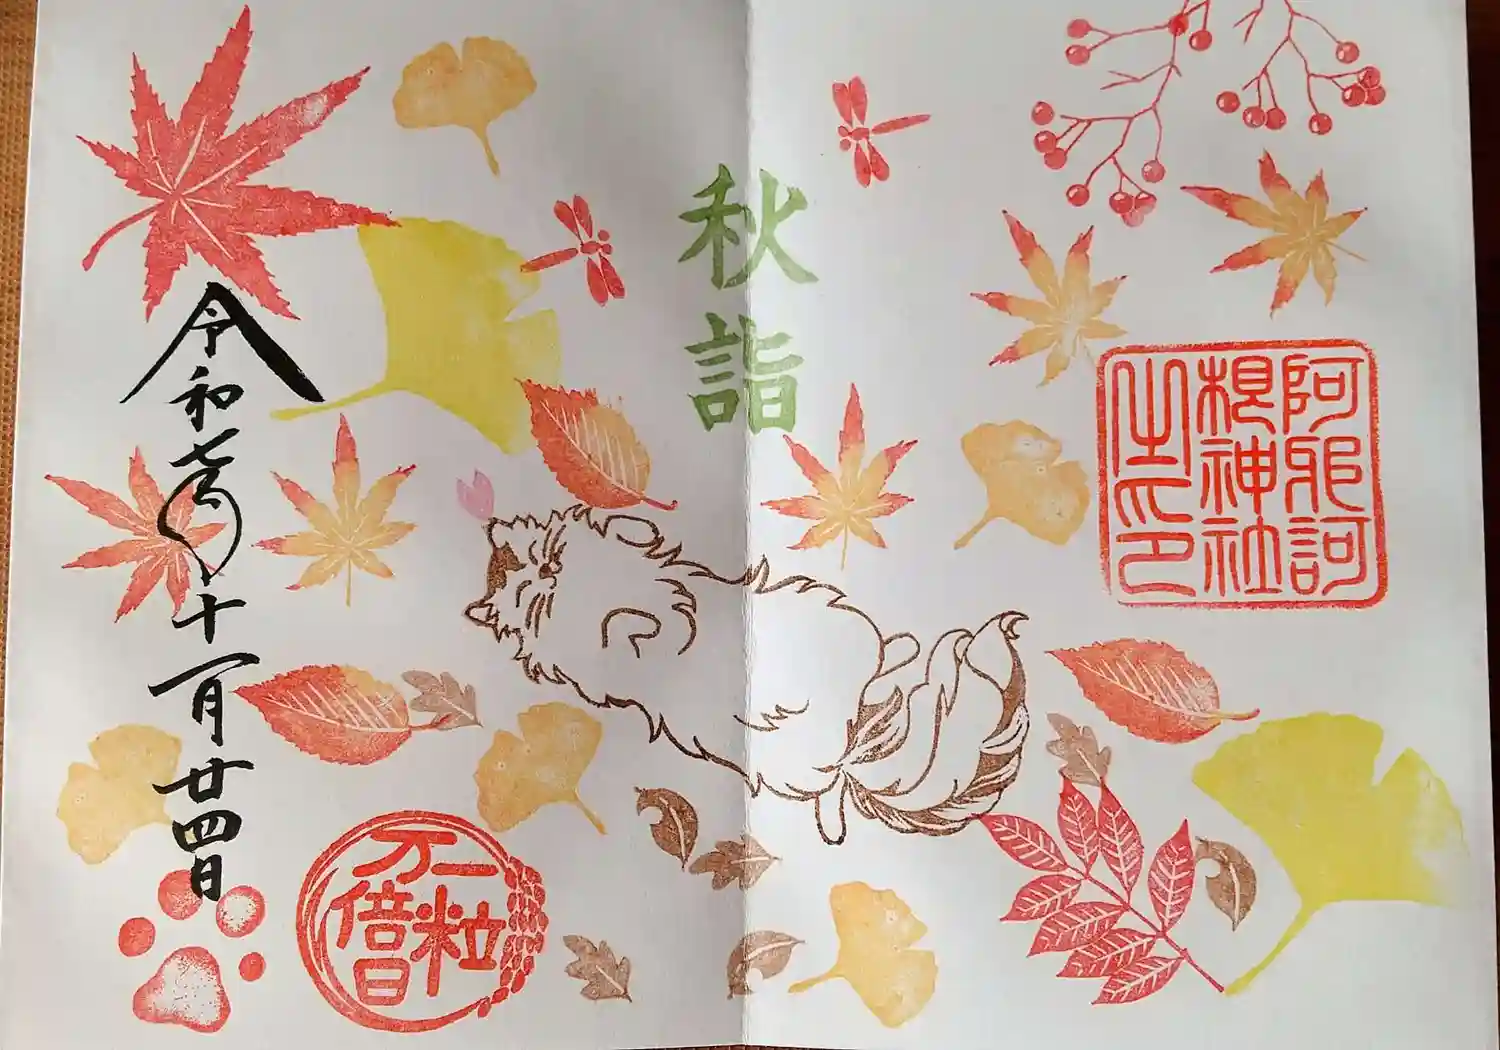 阿邪訶
根神社
之印
秋詣
一粒
万倍日
令和七年十一月廿四日